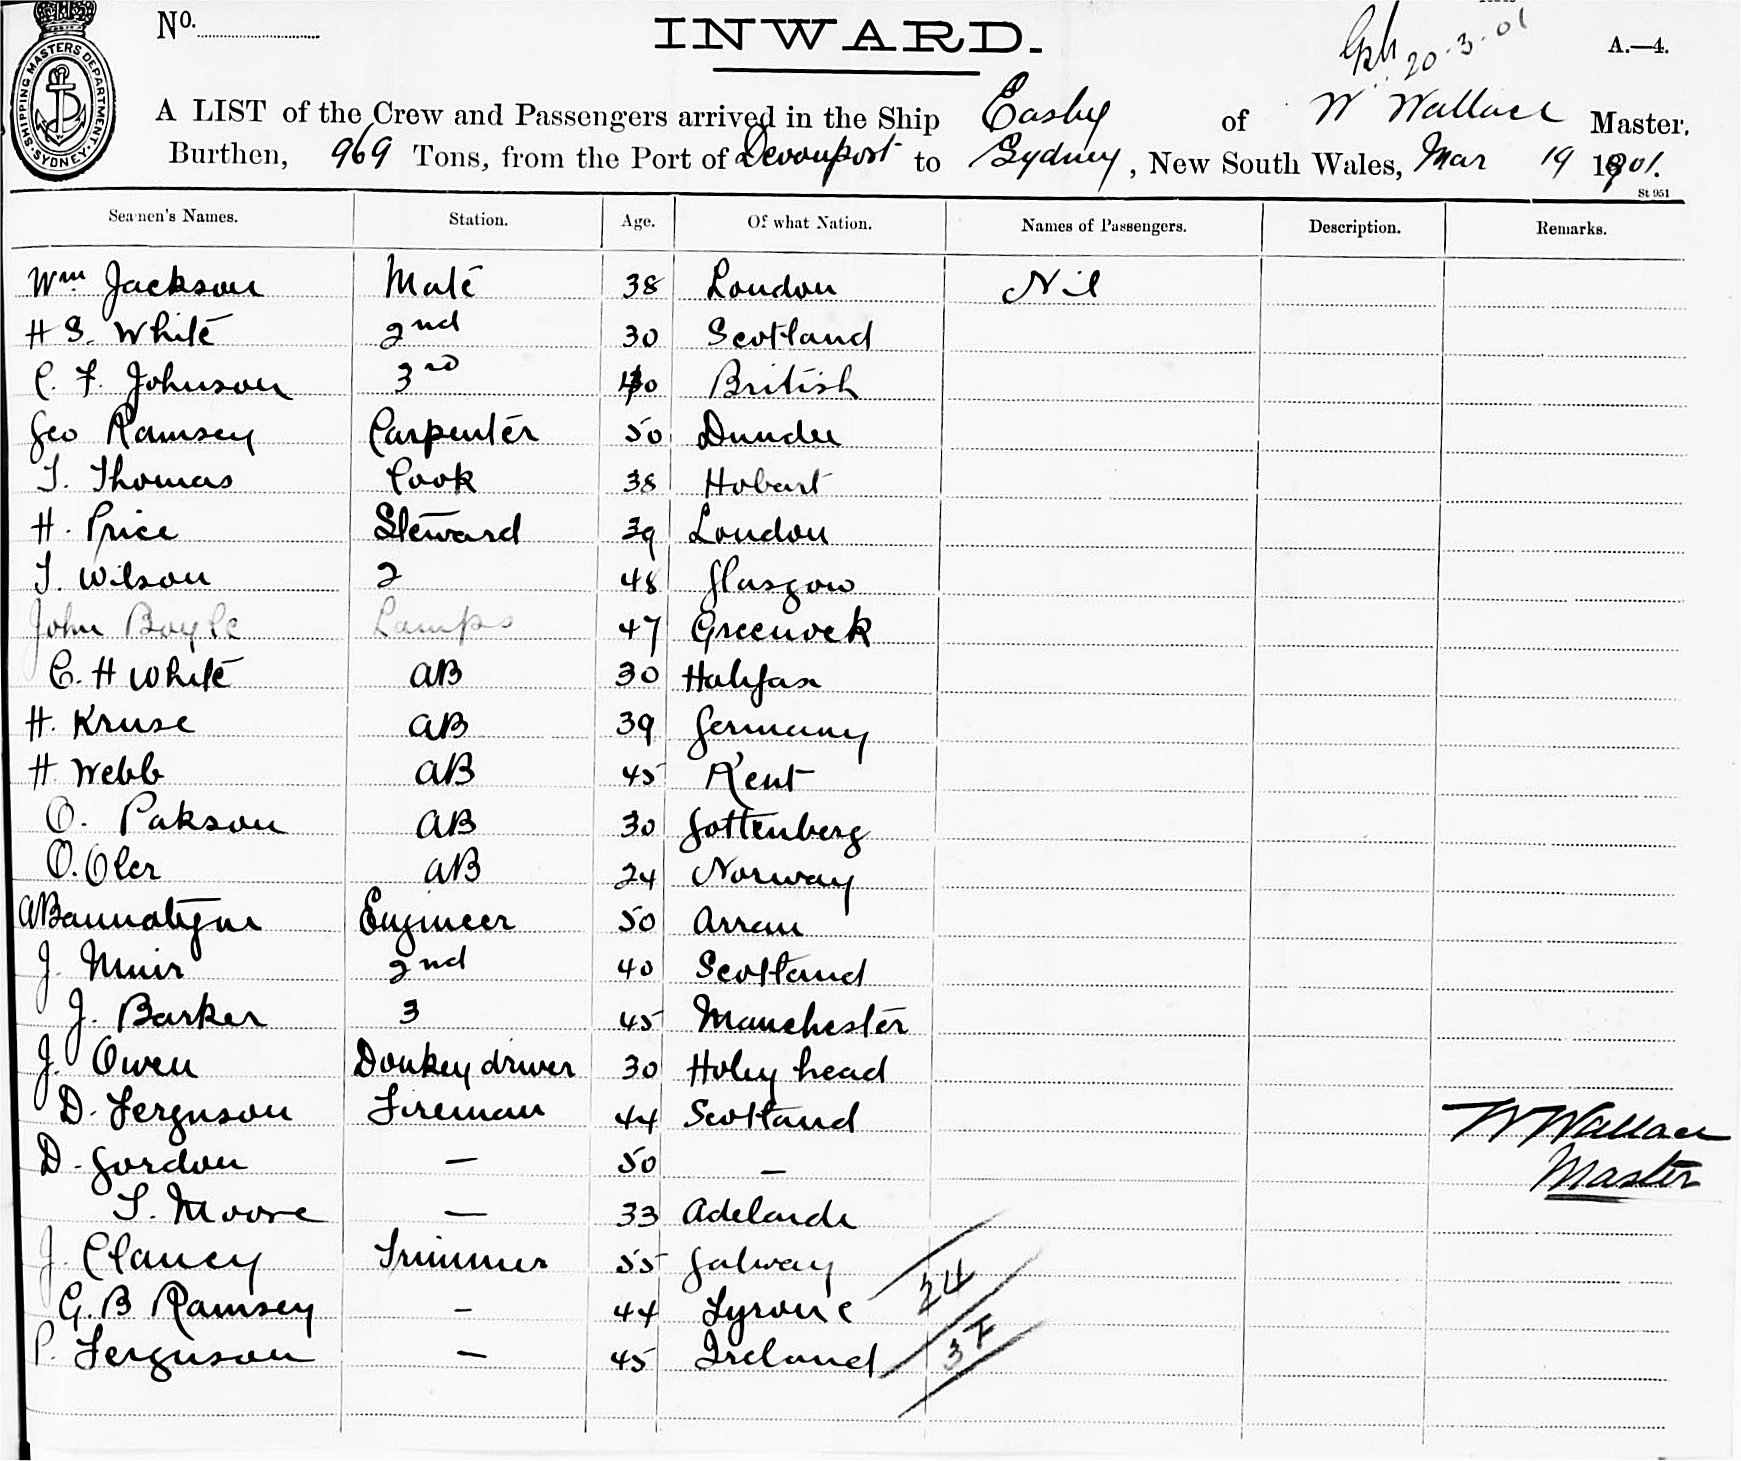 No.
INWARD.
20-3-01
A.—4.
SHIPPING MASTERS DEPARTMENT. SYDNEY.
A LIST of the Crew and Passengers arrived in the Ship Easby of W Wallace Master.
Burthen, 969 Tons, from the Port of Devonport to Sydney, New South Wales, Mar 19 1901.
St 951
Seamen's Names. Station. Age. Of what Nation. Names of Passengers. Description. Remarks.
Wm Jackson Mate 38 London Nil
H S. White 2nd 30 Scotland
C. F. Johnson 3rd 40 British
Geo Ramsey Carpenter 50 Dundee
T. Thomas Cook 38 Hobart
H. Price Steward 39 London
T. Wilson 2 48 Glasgow
John Boyle Lamps 47 Greenock
C. H White AB 30 Halifax
H. Kruse AB 39 Germany
H Webb AB 45 Kent
O. Pakson AB 30 Gottenberg
O. Oler AB 24 Norway
A Bannatyne Engineer 50 Arran
J. Muir 2nd 40 Scotland
J. Barker 3 45 Manchester
J. Owen Donkey driver 30 Holy head
D. Ferguson Fireman 44 Scotland
W Wallace
D. Gordon — 50 —
Master
T. Moore — 33 Adelaide
J. Clancy Trimmer 55 Galway
24
G. B Ramsey - 44 Tyrone
P. Ferguson — 45 Ireland
37